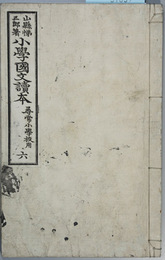 山縣悌三郎著
小學國文讀本
尋常小學校用
六